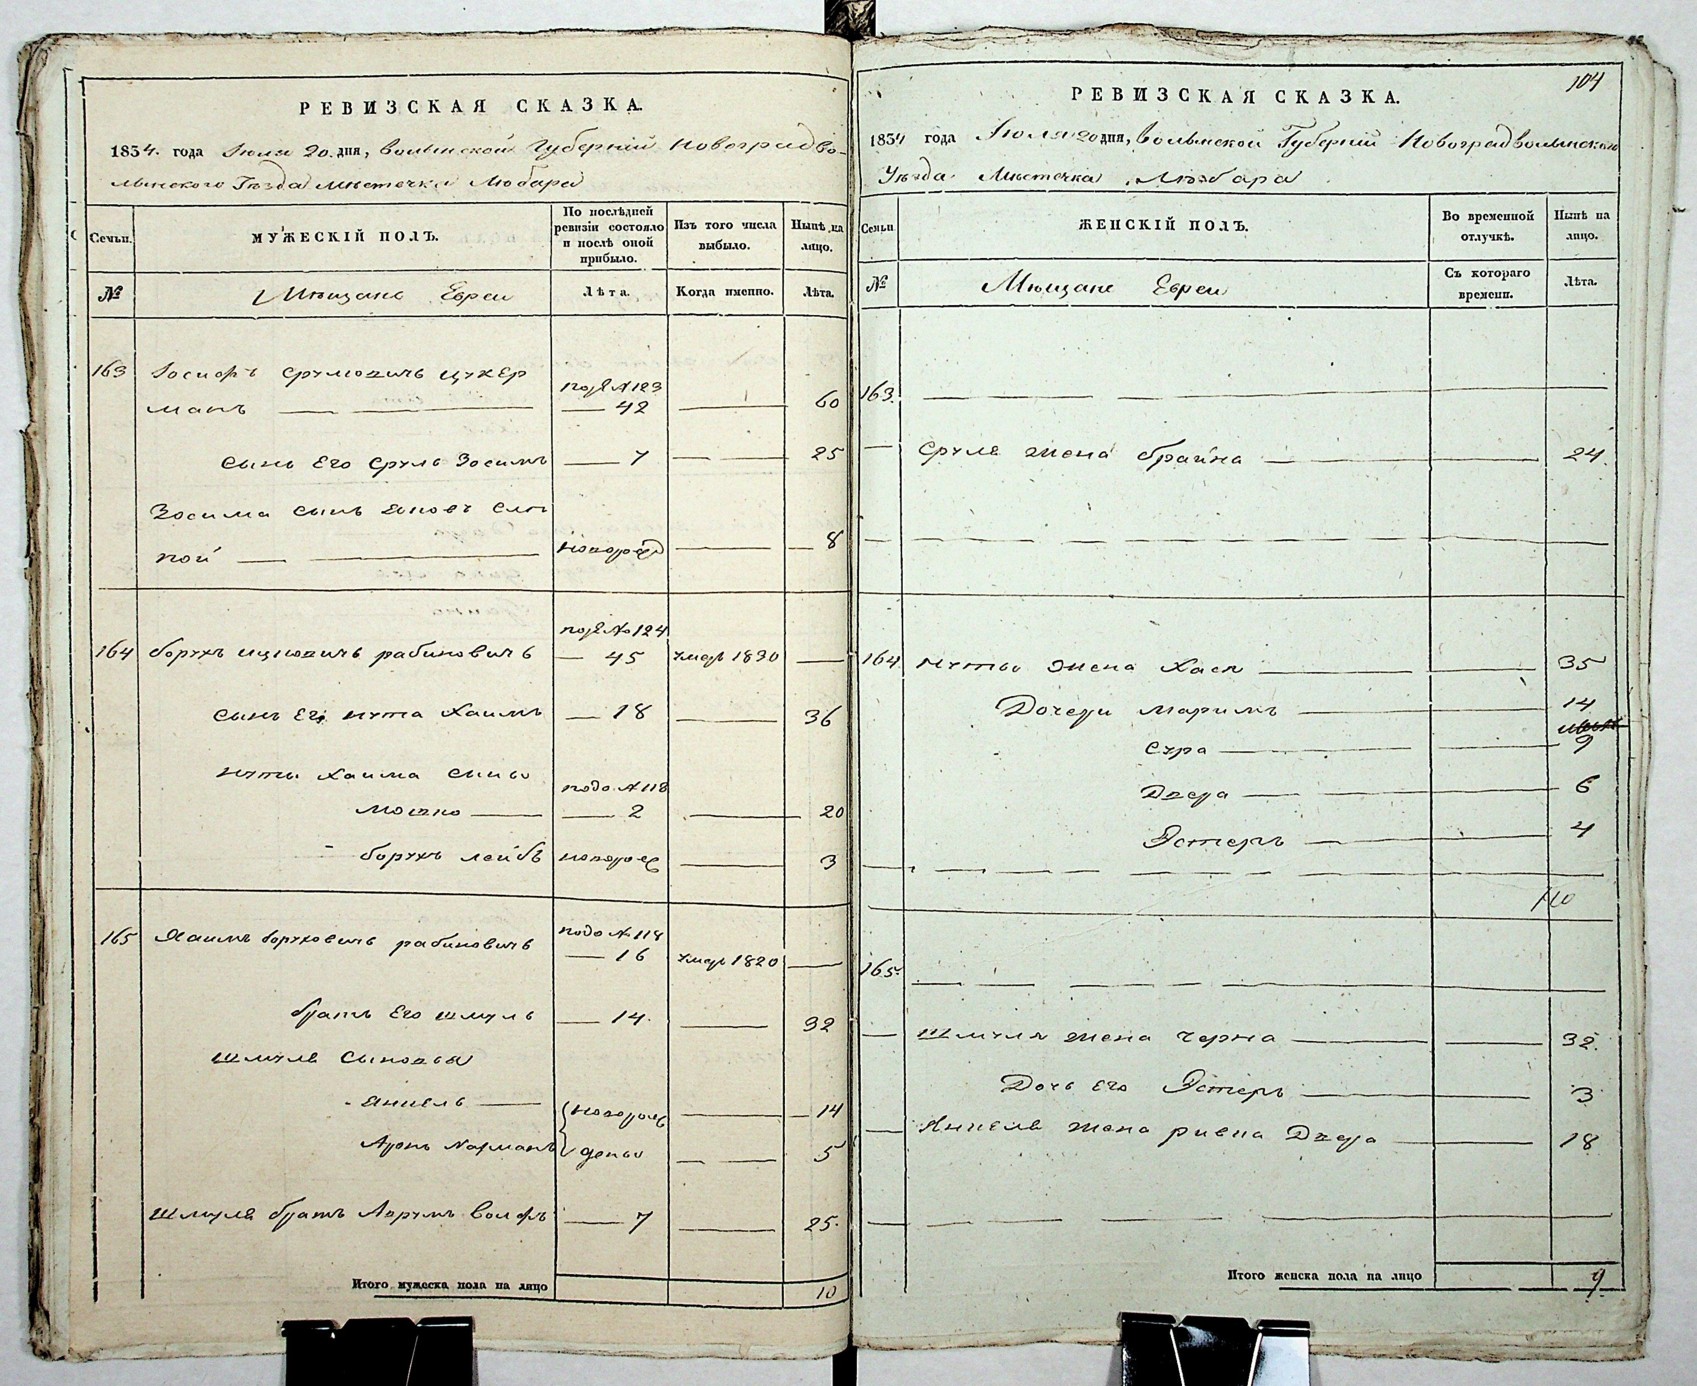 РЕВИЗСКАЯ СКАЗКА.
1834. года Іюля 20. дня, Волынской Губерніи Новоградво-
лынского Уѣзда Мѣстечка Любара
Семьи.
МУЖЕСКІЙ ПОЛЪ.
По послѣдней ревизіи состояло и послѣ оной прибыло.
Изъ того числа выбыло.
Нынѣ на лицо.
№
Мѣщане Евреи
Лѣта.
Когда именно.
Лѣта.
163 Іосифъ Срулювичъ Цукер
манъ под № 123 42 60
сынъ Его Сруль Зосимъ 7 25
Зосима сынъ
пой новорож 8
164 Борухъ Ицковичъ Рабиновичъ под № 124 45 умеръ 1830
сынъ Его Нута Хаимъ 18 36
Нуты Хаима сыны
Мошко подъ № 118 2 20
Борухъ Лейбъ новорож 3
165 Хаимъ Боруховичъ Рабиновичъ подъ № 118 16 умеръ 1820
братъ Его Шмуль 14. 32
Шмуля сыновья
Аншель новорож 14
Аронъ Нахманъ дены 5
Шмуля братъ Аврумъ Волфъ 7 25.
Итого мужеска пола на лицо 10
104
РЕВИЗСКАЯ СКАЗКА.
1834 года Іюля 20 дня, Волынской Губерніи Новоградволынского
Уѣзда Мѣстечка Любара
Семьи
ЖЕНСКІЙ ПОЛЪ.
Во временной отлучкѣ.
Нынѣ на лицо.
№
Мѣщане Евреи
Съ котораго времени.
Лѣта.
163.
Сруля жена Брайна 24.
164 Нуты жена Хася 35
Дочери Маримъ 14
Сура 9
Двера 6
Эстеръ 4
165.
Шмуля жена Черна 32.
Дочь его Эстеръ 3
Аншеля жена Ривка Двера 18
Итого женска пола на лицо 9